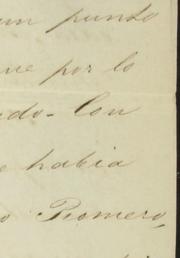 un punto
que por lo
do - Con
habia
Romero,